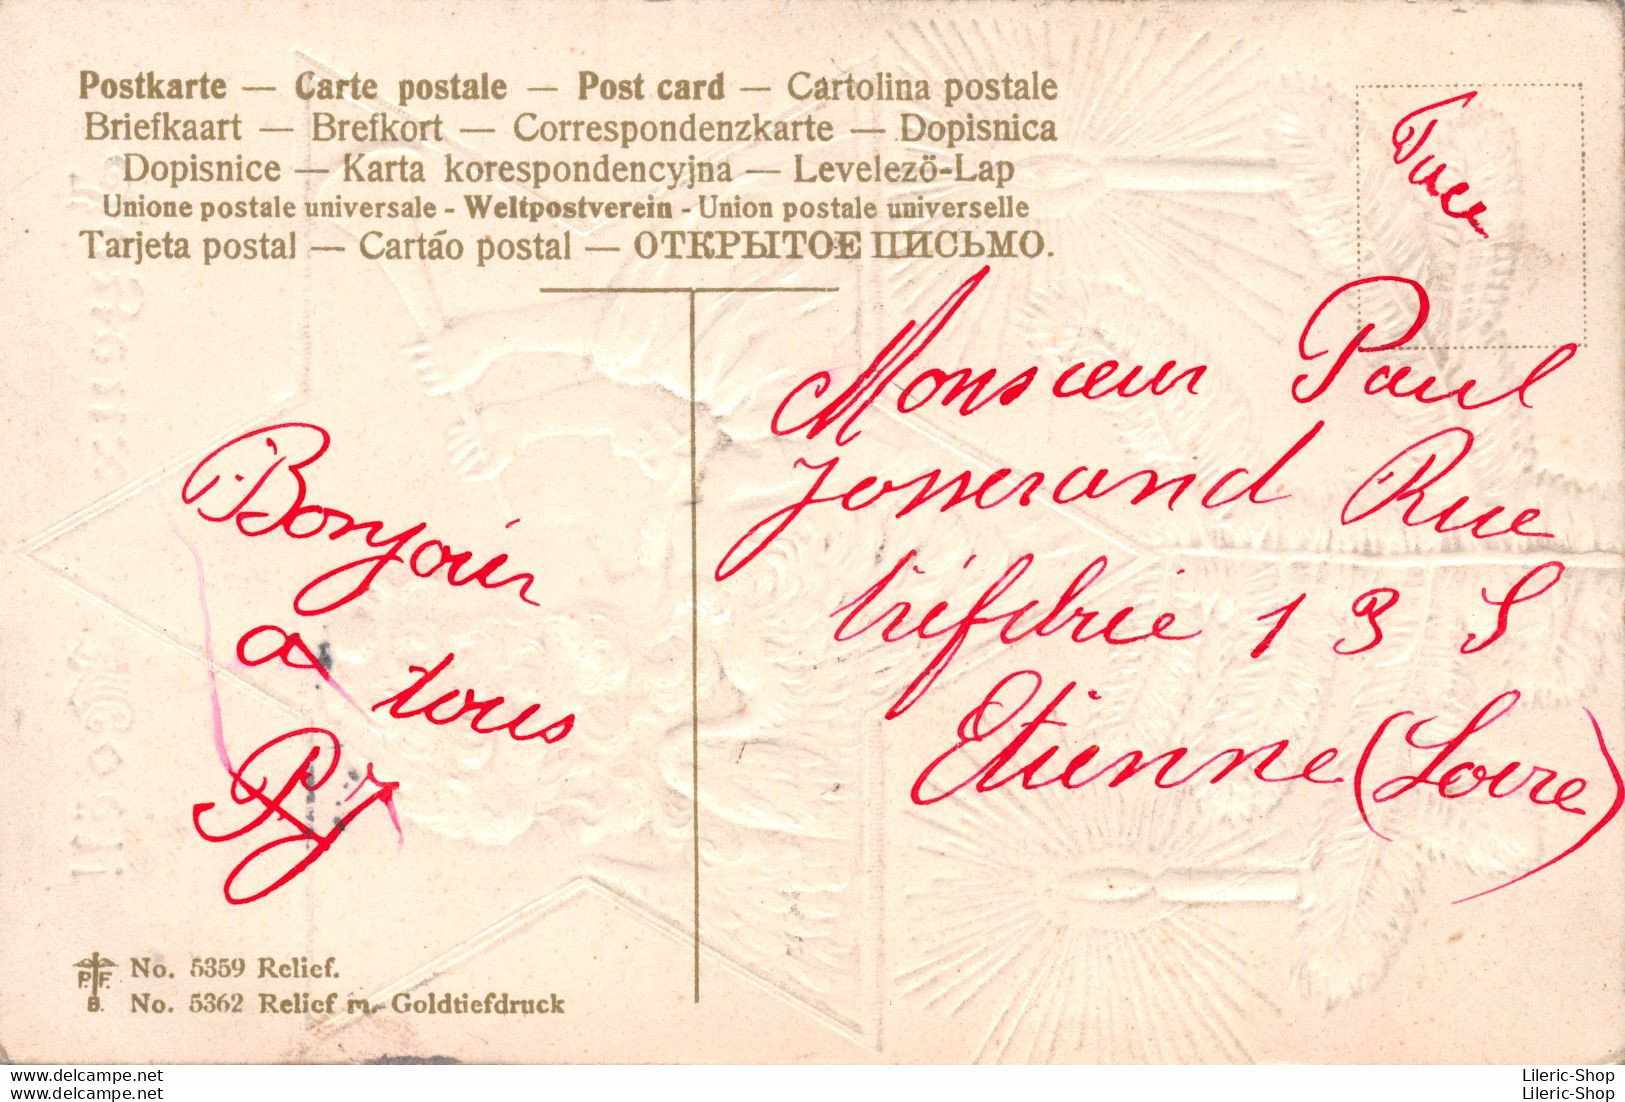 Postkarte — Carte postale — Post card — Cartolina postale
Briefkaart — Brefkort — Correspondenzkarte — Dopisnica
Dopisnice — Karta korespondencyjna — Levelezö-Lap
Unione postale universale - Weltpostverein - Union postale universelle
Tarjeta postal — Cartáo postal — ОТКРЫТОЕ ПИСЬМО.
Monsieur Paul
Josserand Rue
tréfilerie 13 S
Etienne (Loire)
Bonjour
a tous
PJ
P. F.
B.
No. 5359 Relief.
No. 5362 Relief m. Goldtiefdruck
www.delcampe.net
www.delcampe.net
Lileric-Shop
Lileric-Shop